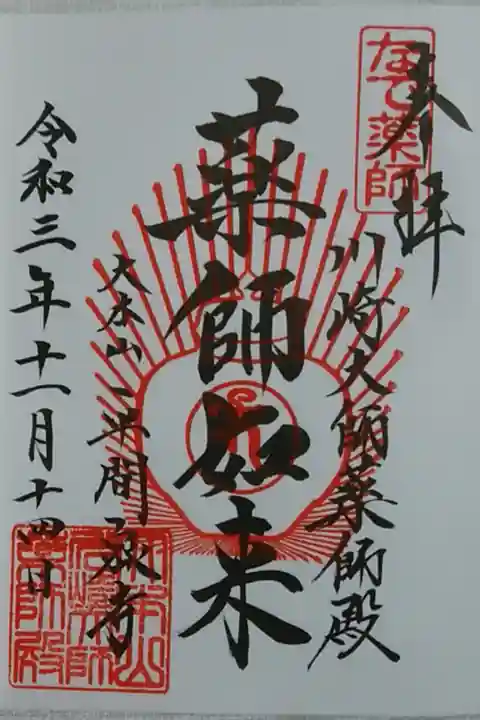 奉拝
なで薬師
川崎大師薬師殿
薬師如来
大本山平間寺
令和三年十一月十四日